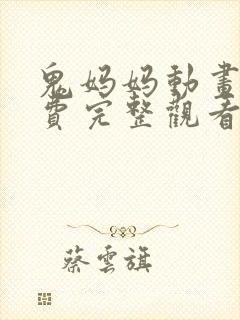 鬼妈妈動畫
費完整觀看
蔡雲旗